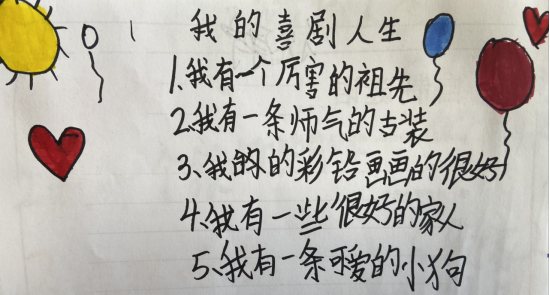 我的喜剧人生
1.我有一个厉害的祖先
2.我有一条师气的古装
3、我的的彩铅画画的很好
4、我有一些很好的家人
5、我有一条可爱的小狗